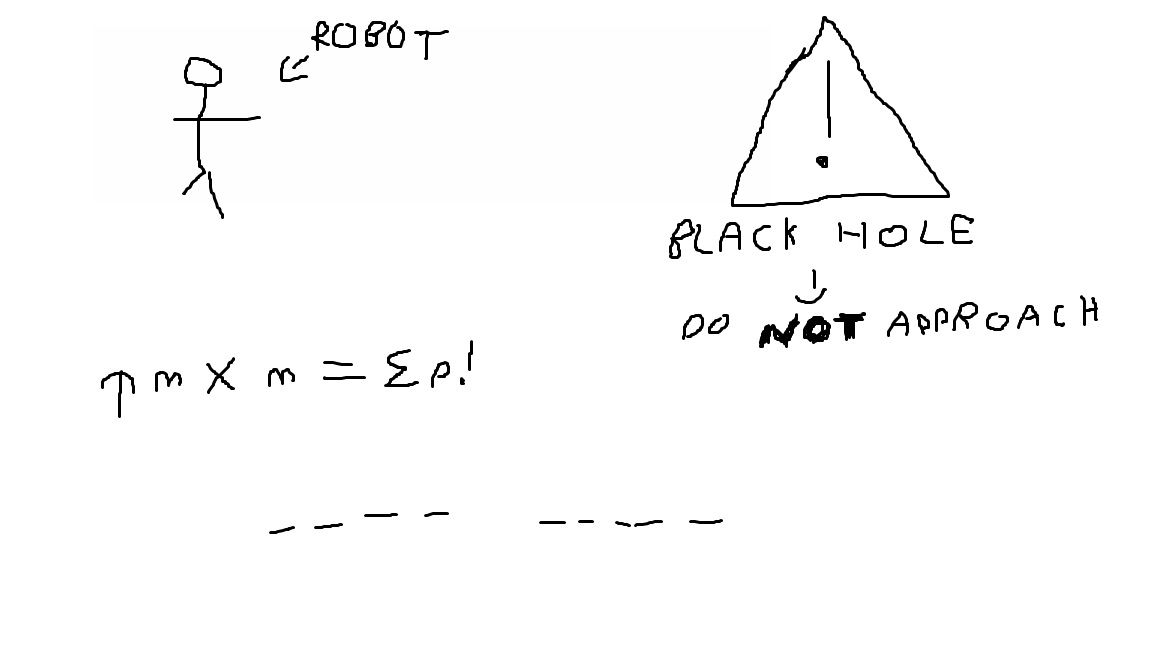 ROBOT
!
BLACK HOLE
DO NOT APPROACH
↑ m X m = Σ p.!
_ _ _ _  _ _ _ _ _